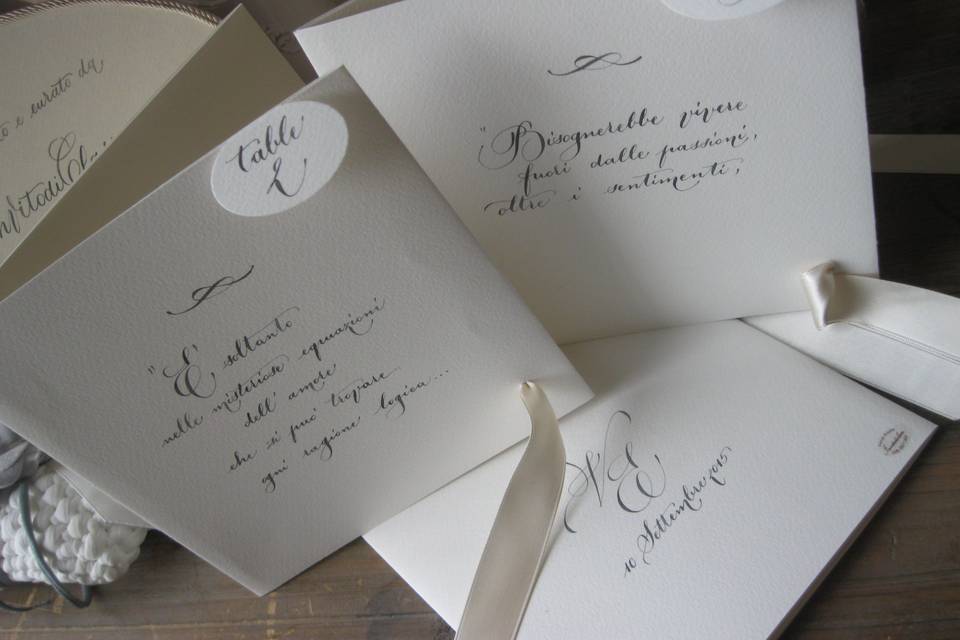 e curato da
table
2
"E' soltanto
nelle misteriose equazioni
dell' amore
che si può trovare
ogni ragione logica...
"Bisognerebbe vivere
fuori dalle passioni,
oltre i sentimenti,
VE
10 Settembre 2015